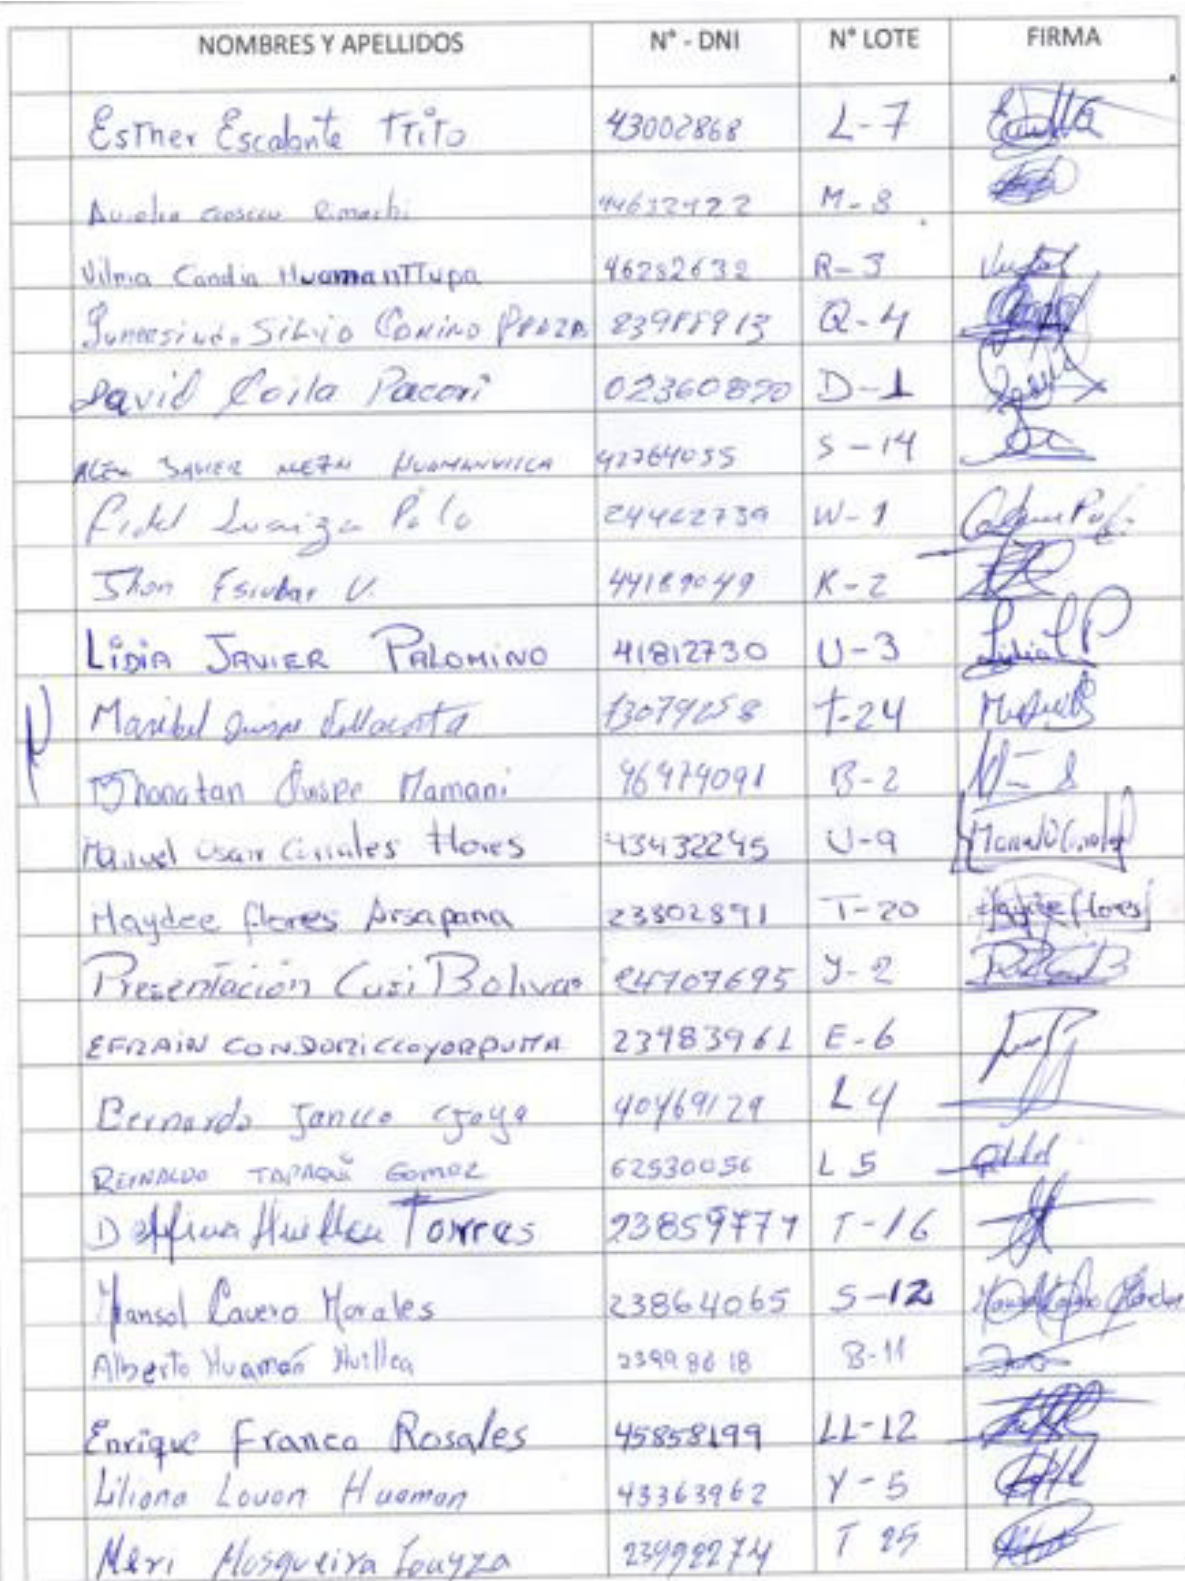 NOMBRES Y APELLIDOS N° - DNI N° LOTE FIRMA
Esther Escalante TTito 43002868 L-7
Aurelia Ccoscco Rimachi 44632422 M-8
Vilma Candia HuamanTTupa 46282632 R-3
Silvio 23988913 Q-4
David Coila Pacori 02360870 D-1
ALEX JAVIER MEZA HUAMANVILCA 42764055 S-14
Fidel Luaiza Polo 24462739 W-1
Jhon Escobar V. 44189049 K-2
LIDIA JAVIER PALOMINO 41812730 U-3
Maribel Quispe 73079258 T-24
Jhonatan Quispe Mamani 46474091 B-2
Manuel Usair Cirrales Flores 43432245 U-9
Haydee flores Arsapana 23802891 T-20 Haydee flores
Presentación Cusi Bolivar 24707695 Y-2
EFRAIN CONDORI CCOYORPUMA 23983961 E-6
Bernardo Jancco Ccjoya 40469129 L4
REYNALDO GOMEZ 62530056 L5
Delfina Huillca Torres 23859777 T-16
Marisol Cavero Morales 23864065 S-12
Alberto Huamán Huillca 23998618 B-11
Enrique Franco Rosales 45858199 LL-12
Liliana Lovon Huaman 43363962 Y-5
Meri Mosqueira Loayza 23992274 T 25